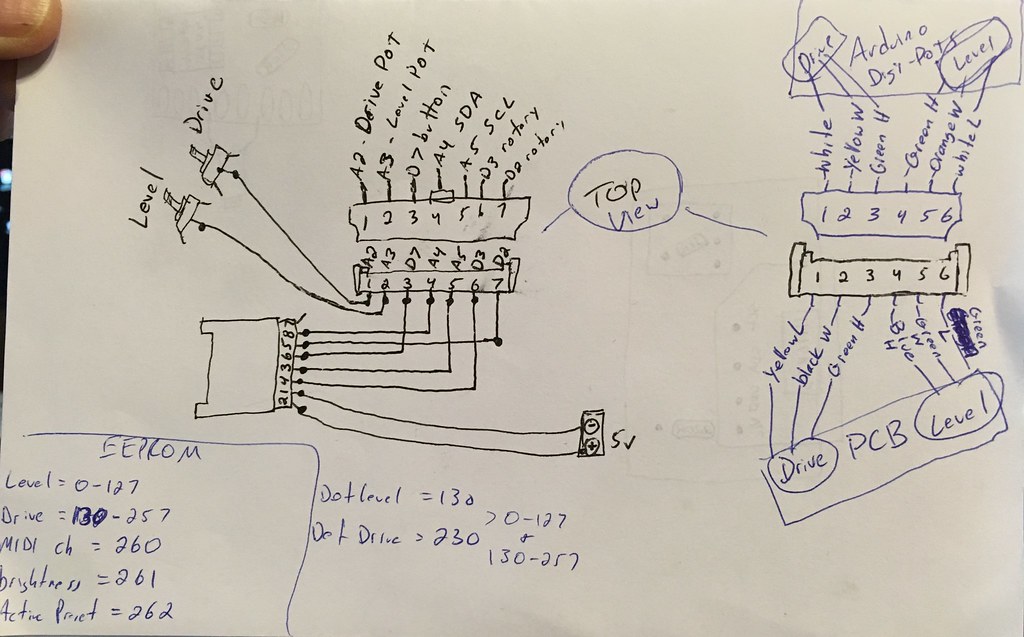 Drive
Level
A2 - Drive Pot
A3 - Level Pot
D7 button
A4 SDA
A5 SCL
D3 rotory
D2 rotory
1 2 3 4 5 6 7
A2 A3 D7 A4 A5 D3 D2
1 2 3 4 5 6 7
TOP
View
5V
Arduino
Digi-Pots
Drive
Level
White
Yellow W
Green H
Green H
Orange W
White L
1 2 3 4 5 6
1 2 3 4 5 6
Yellow L
black W
Green H
Blue H
Green W
Green L
Drive
PCB
Level
EEPROM
Level = 0-127
Drive = 130-257
MIDI ch = 260
brightness = 261
Active Preset = 262
Dot level = 130
Dot Drive = 230
> 0-127
+
130-257